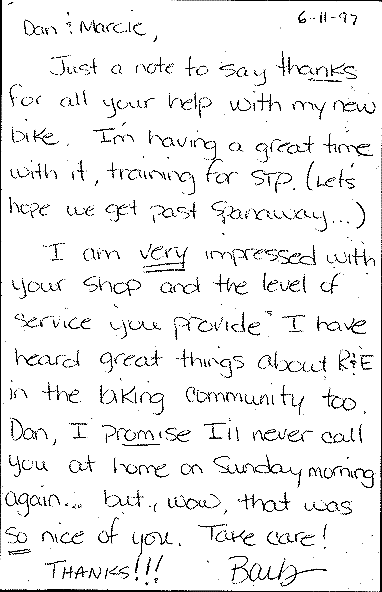 6-11-97
Dan & Marcie,
Just a note to say thanks
for all your help with my new
bike. I'm having a great time
with it, training for STP. (Let's
hope we get past Spanaway...)
I am very impressed with
your shop and the level of
service you provide. I have
heard great things about R&E
in the biking community too.
Dan, I promise I'll never call
you at home on Sunday morning
again... but, wow, that was
so nice of you. Take care!
THANKS!!! Barb